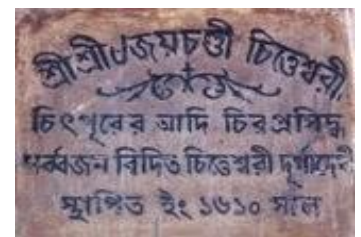 শ্রী শ্রী ৺জয়চণ্ডী চিত্তেশ্বরী
চিৎপুরের আদি চিরপ্রসিদ্ধ
সর্ব্বজন বিদিত চিত্তেশ্বরী দুর্গাদেবী
স্থাপিত ইং ১৬১০ সাল